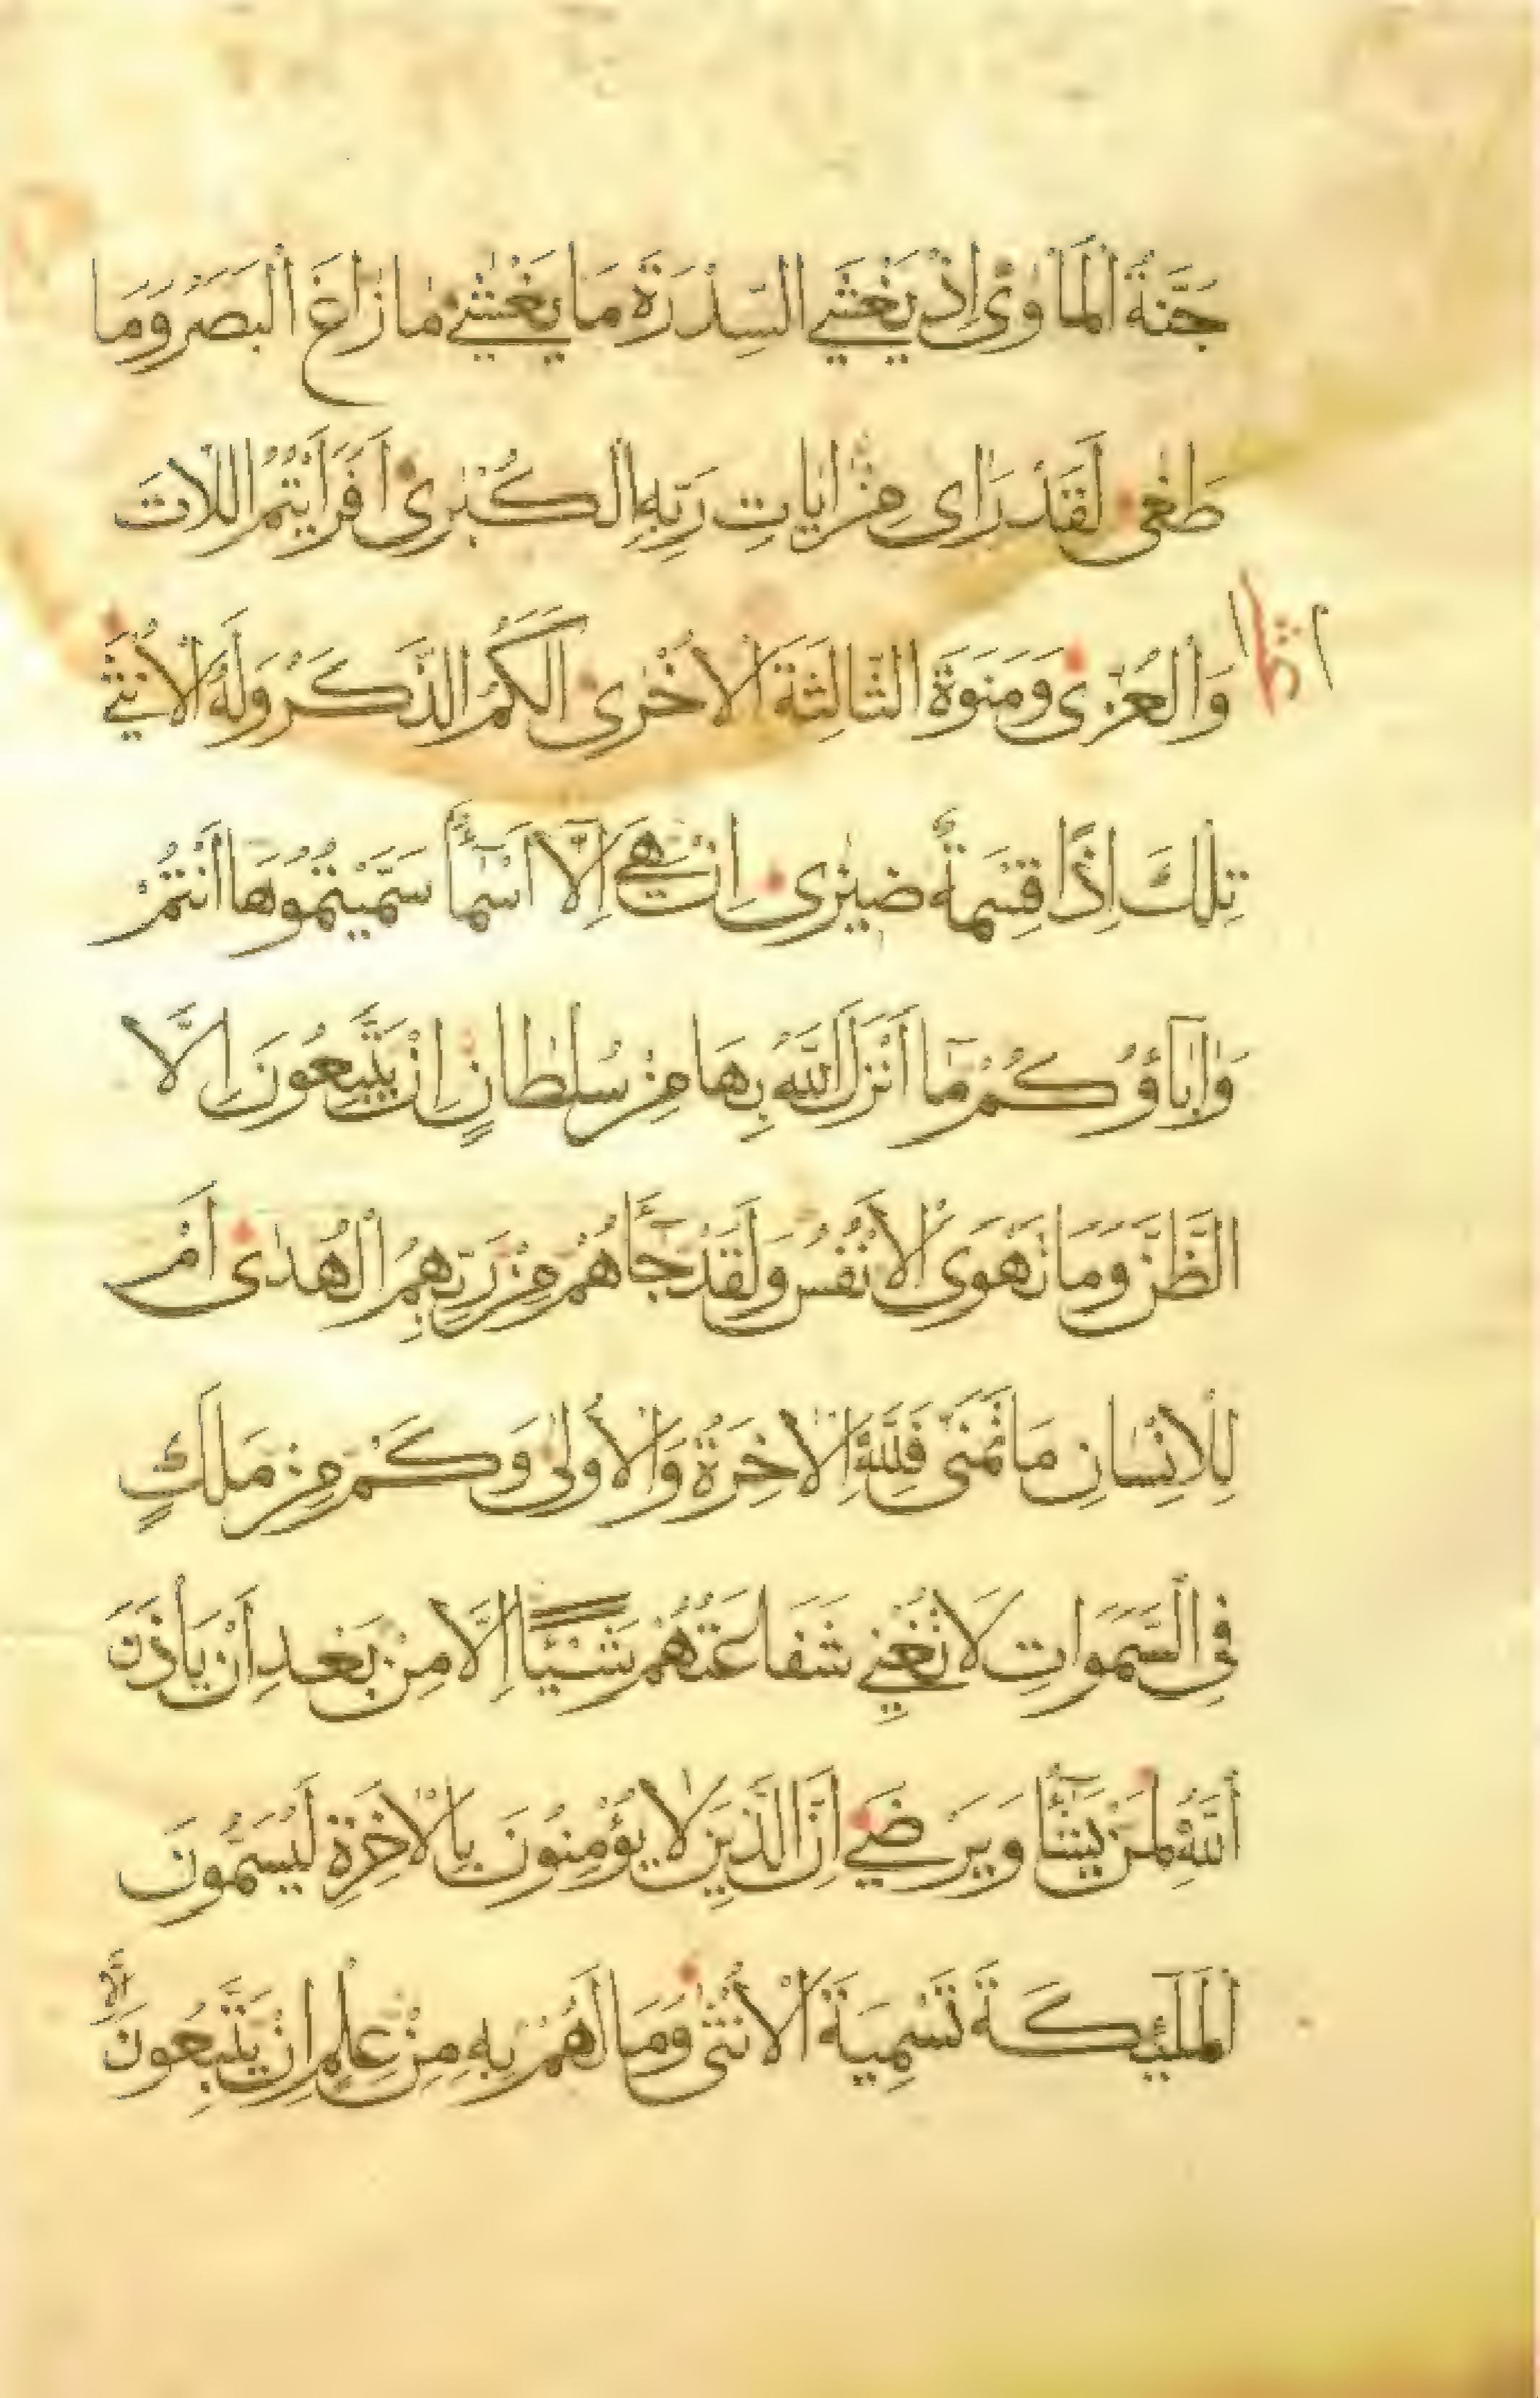 جَنَّةُ الْمَأْوٰىٓ اِذْ يَغْشَي السِّدْرَةَ مَا يَغْشٰي مٰا زٰاغَ الْبَصَرُ وَمَا
طَغٰى لَقَدْ رَاٰى مِنْ اٰيٰاتِ رَبِّهِ الْكُبْرٰى اَفَرَاَيْتُمُ اللّٰاتَ
وَالْعُزّٰى وَمَنٰوةَ الثَّالِثَةَ الْاُخْرٰى اَلَكُمُ الذَّكَرُ وَلَهُ الْاُنْثٰي
تِلْكَ اِذًا قِسْمَةٌ ضِيْزٰى اِنْ هِيَ اِلَّا اَسْمَآءٌ سَمَّيْتُمُوْهَا اَنْتُمْ
وَاٰبَاؤُكُمْ مَّآ اَنْزَلَ اللّٰهُ بِهَا مِنْ سُلْطَانٍ اِنْ يَتَّبِعُونَ اِلَّا
الظَّنَّ وَمَا تَهْوَى الْاَنْفُسُ وَلَقَدْ جَآءَهُمْ مِنْ رَبِّهِمُ الْهُدٰى اَمْ
لِلْاِنْسٰانِ مَا تَمَنّٰى فَلِلّٰهِ الْاٰخِرَةُ وَالْاُولٰى وَكَمْ مِنْ مَلَكٍ
فِى السَّمٰوَاتِ لَا تُغْنِي شَفَاعَتُهُمْ شَيْئًا اِلَّا مِنْ بَعْدِ اَنْ يَأْذَنَ
اللّٰهُ لِمَنْ يَشَآءُ وَيَرْضٰي اِنَّ الَّذِينَ لَا يُؤْمِنُونَ بِالْاٰخِرَةِ لَيُسَمُّونَ
الْمَلٰئِكَةَ تَسْمِيَةَ الْاُنْثٰى وَمَا لَهُمْ بِهِ مِنْ عِلْمٍ اِنْ يَتَّبِعُونَ اِلَّا